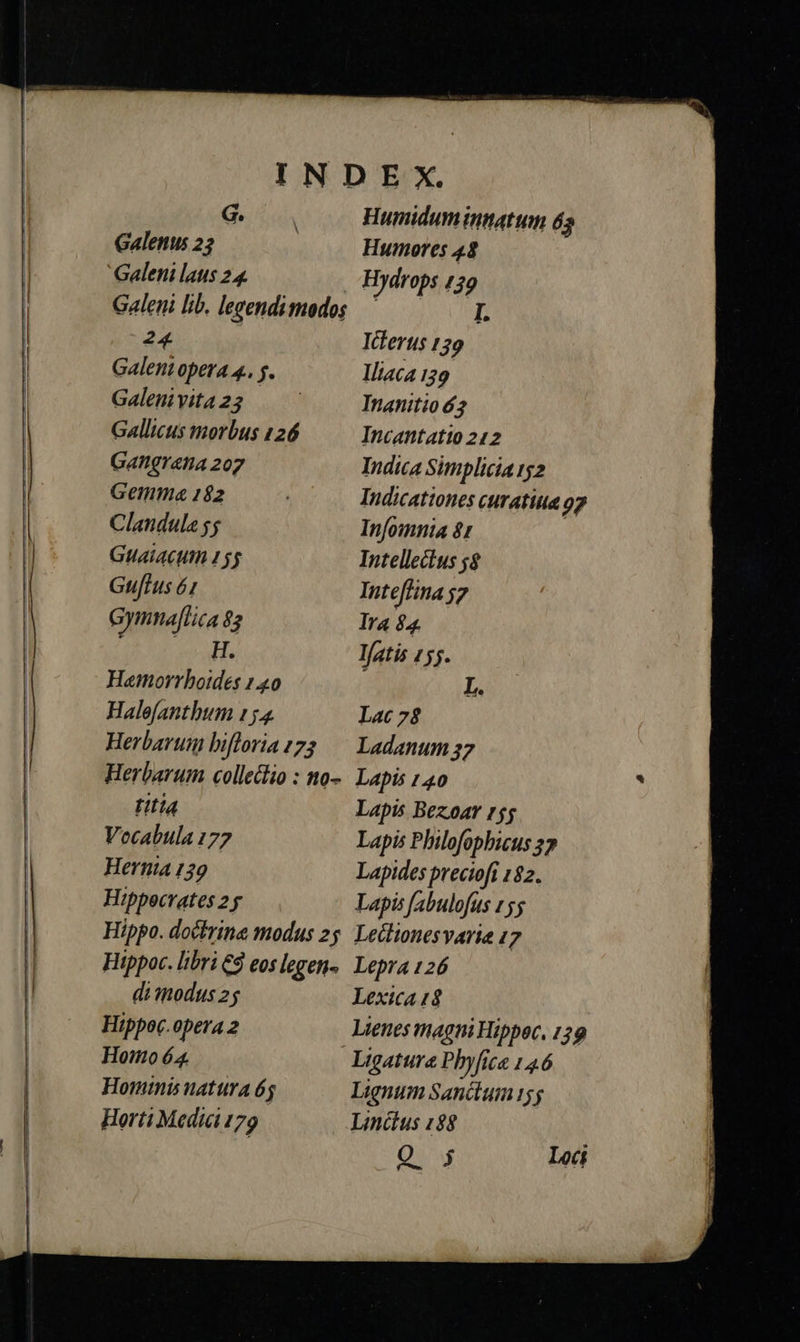 INDEX.
G.
Galenus 23
Galeni laus 24.
Galeni lib. legendi modos
24
Galeni opera 4. 5.
Galeni vita 23
Gallicus morbus 126
Gangræna 207
Gemmæ 182
Clandulæ 55
Guaiacum 155
Guſtus 61
Gymnaſtica 83
H.
Hæmorrhoides 140
Haloſanthum 154
Herbarum hiſtoria 173
Herbarum collectio : no-
titia
Vocabula 177
Hernia 139
Hippocrates 25
Hippo. doctrinæ modus 25
Hippoc. libri & eos legen-
di modus 25
Hippoc. opera 2
Homo 64
Hominis natura 65
Horti Medici 179
Humidum innatum 63
Humores 48
Hydrops 139
I.
Icterus 139
Iliaca 139
Inanitio 63
Incantatio 212
Indica Simplicia 152
Indicationes curatiuæ 97
Inſomnia 81
Intellectus 58
Inteſtina 57
Ira 84
Iſatis 155.
L.
Lac 78
Ladanum 37
Lapis 140
Lapis Bezoar 155
Lapis Philoſophicus 37
Lapides precioſi 182.
Lapis fabuloſus 155
Lectiones variæ 17
Lepra 126
Lexica 18
Lienes magni Hippoc. 139
Ligaturæ Phyſicæ 146
Lignum Sanctum 155
Linctus 188
Q 5 Loci